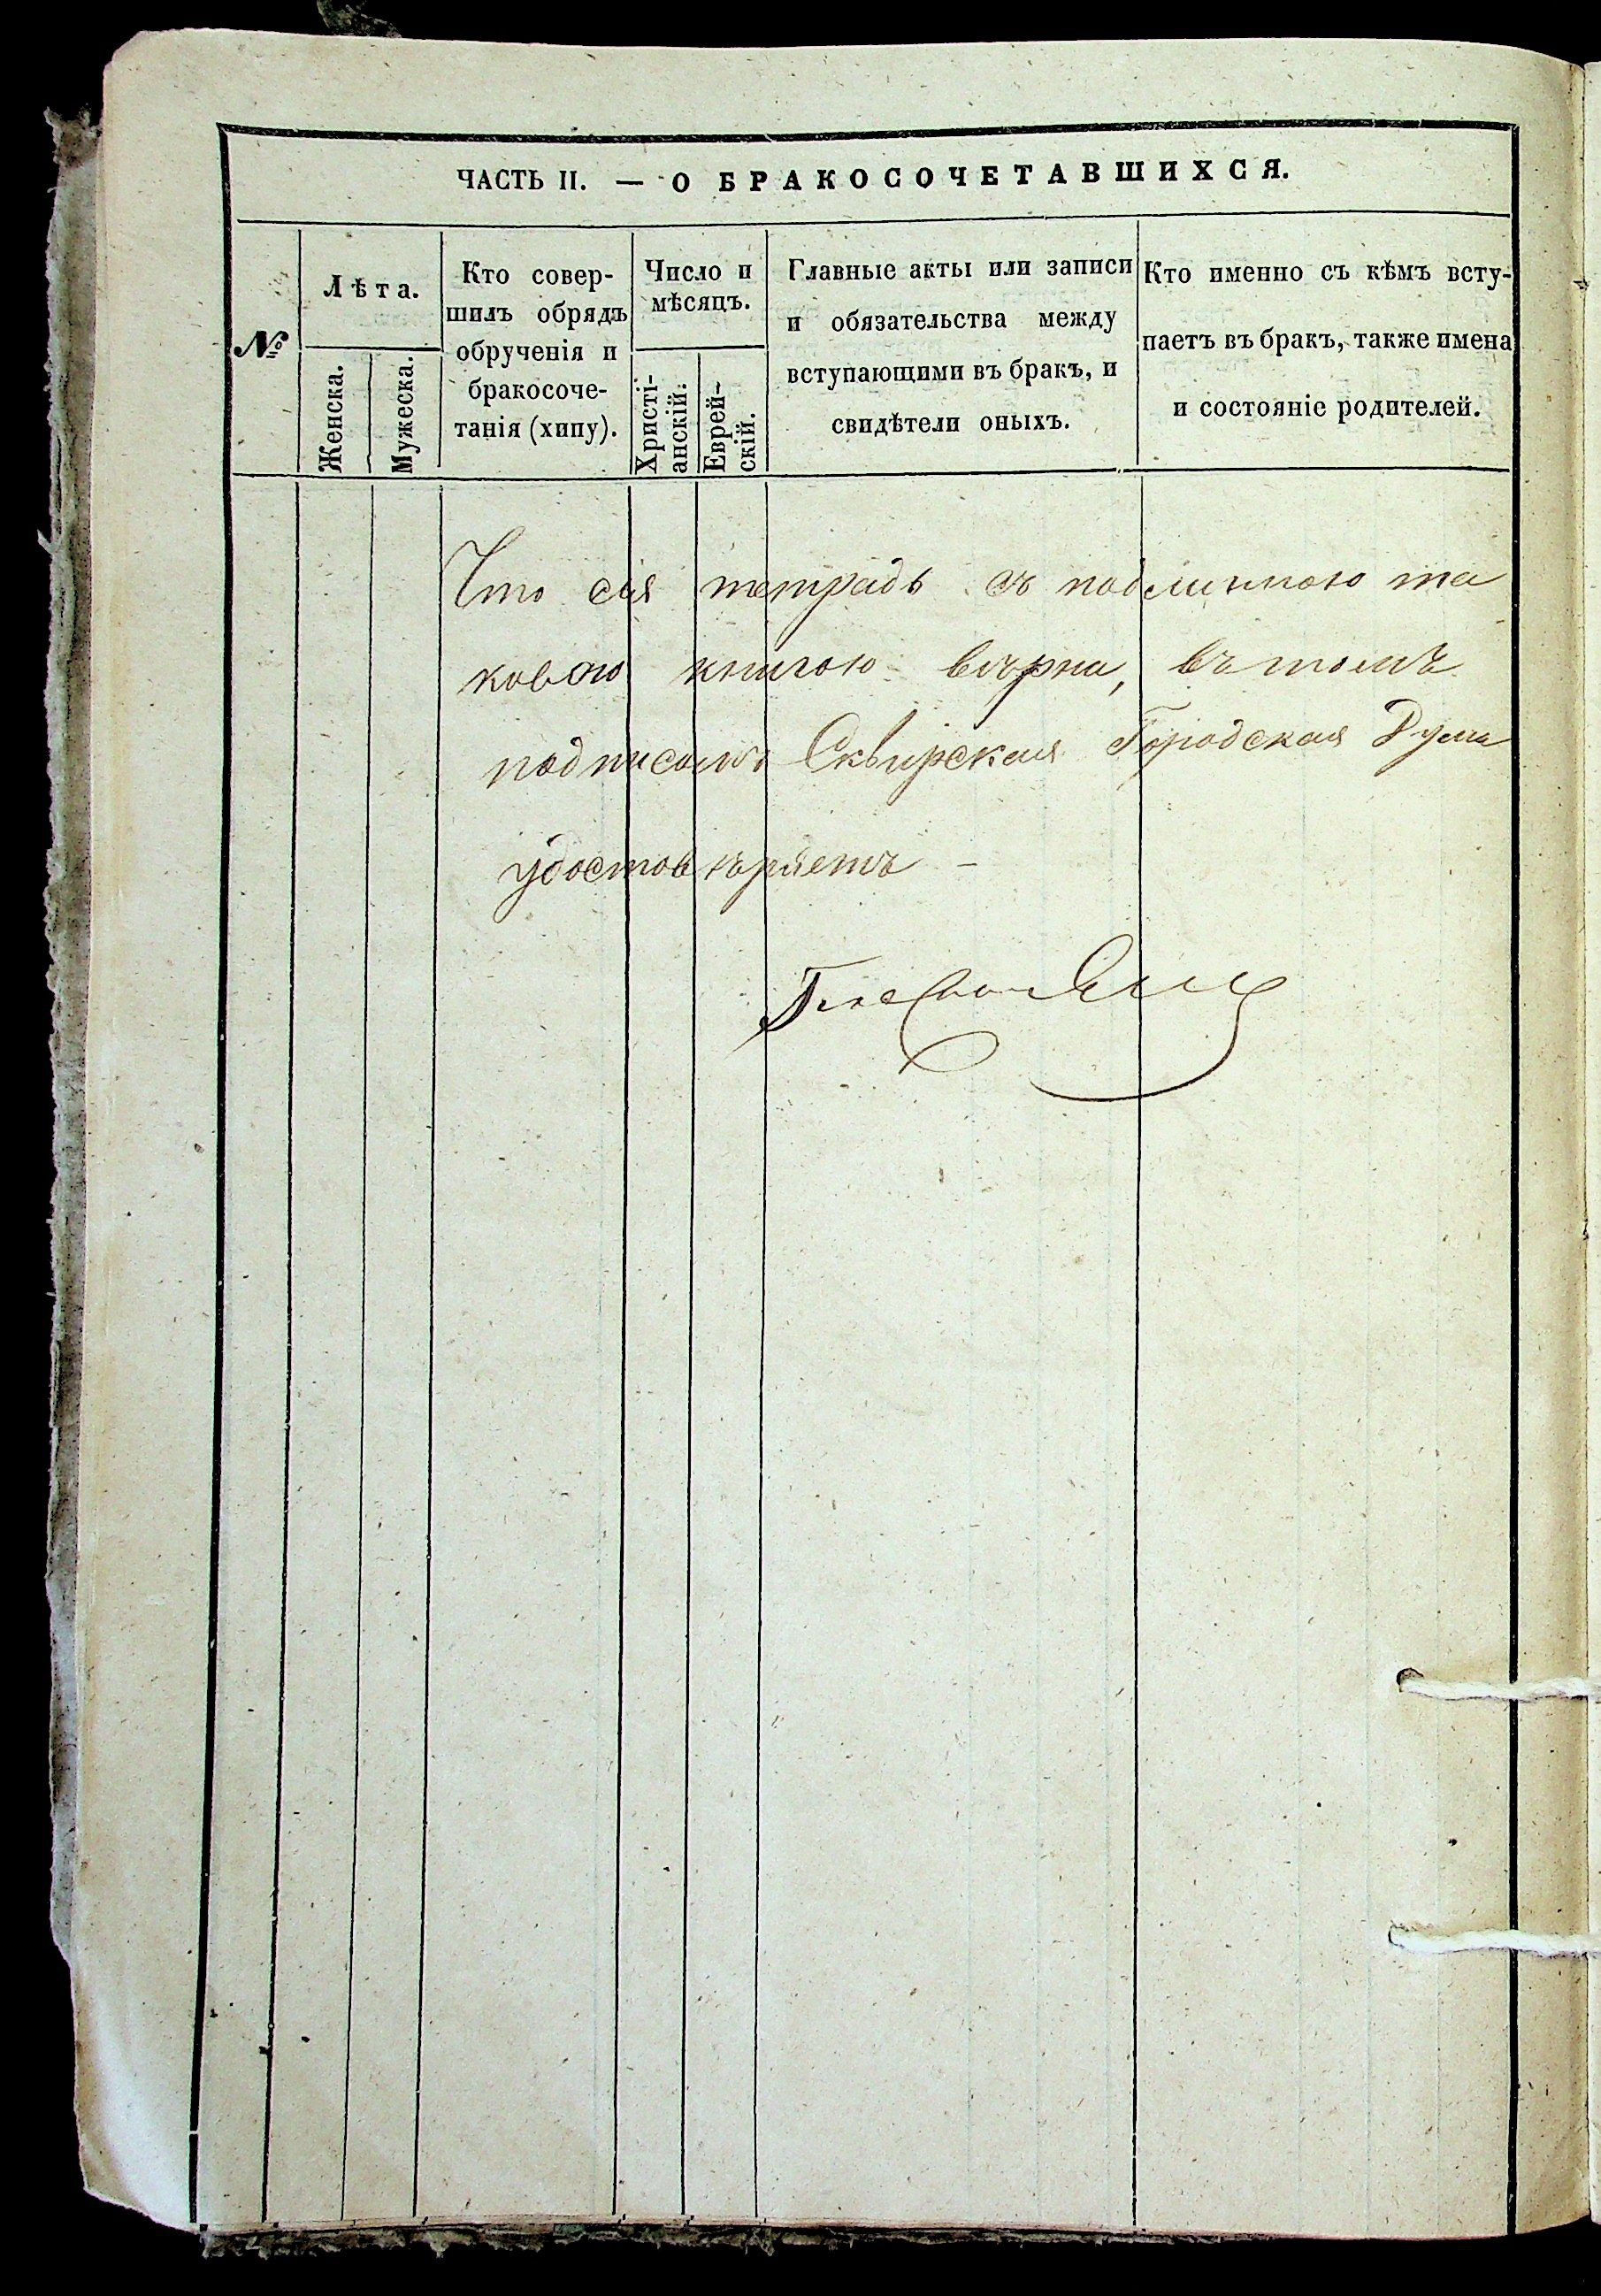 ЧАСТЬ II. — О БРАКОСОЧЕТАВШИХСЯ.
№
Лѣта.
Женска.
Мужеска.
Кто совер-
шилъ обрядъ
обрученія и
бракосоче-
танія (хипу).
Число и
мѣсяцъ.
Христі-
анскій.
Еврей-
скій.
Главные акты или записи
и обязательства между
вступающими въ бракъ, и
свидѣтели оныхъ.
Кто именно съ кѣмъ всту-
паетъ въ бракъ, также имена
и состояніе родителей.
Что сія тетрадь съ подлинною та
ковою книгою вѣрна, въ томъ
подписомъ Сквирская Городская Дума
удостовѣряетъ –